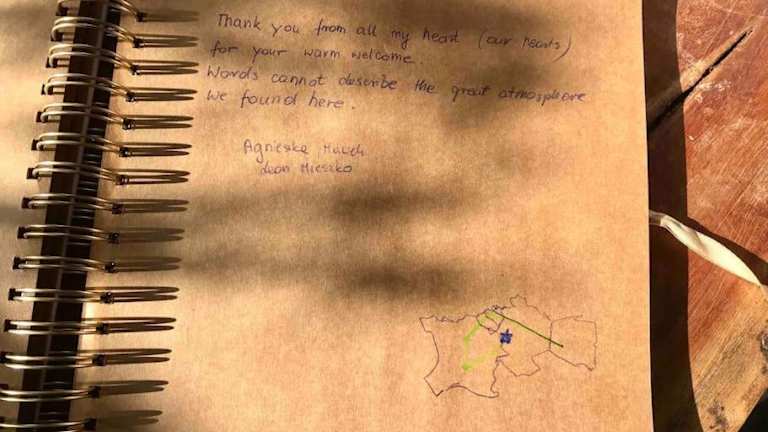 Thank you from all my heart (our hearts)
for your warm welcome.
Words cannot describe the great atmosphere
we found here.
Agnieszka
Leon Mieszko